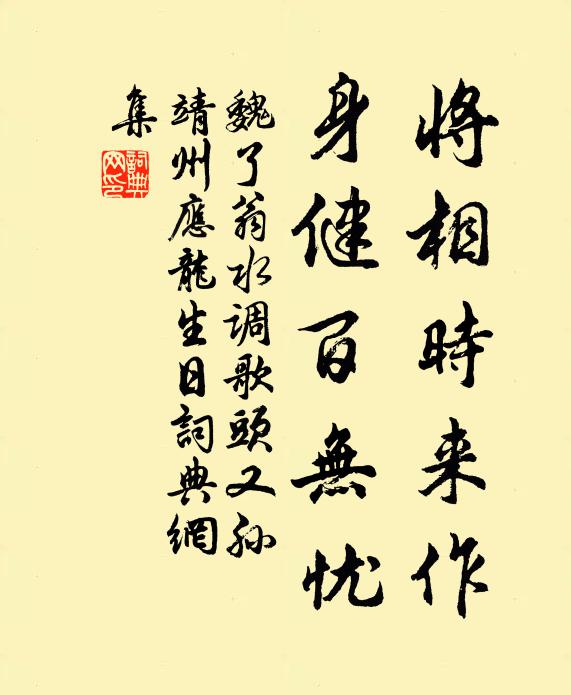 将相時来作
身健百無忧
魏了翁水调歌頭又孙
靖州應龍生日詞典網
集
詞典
网印